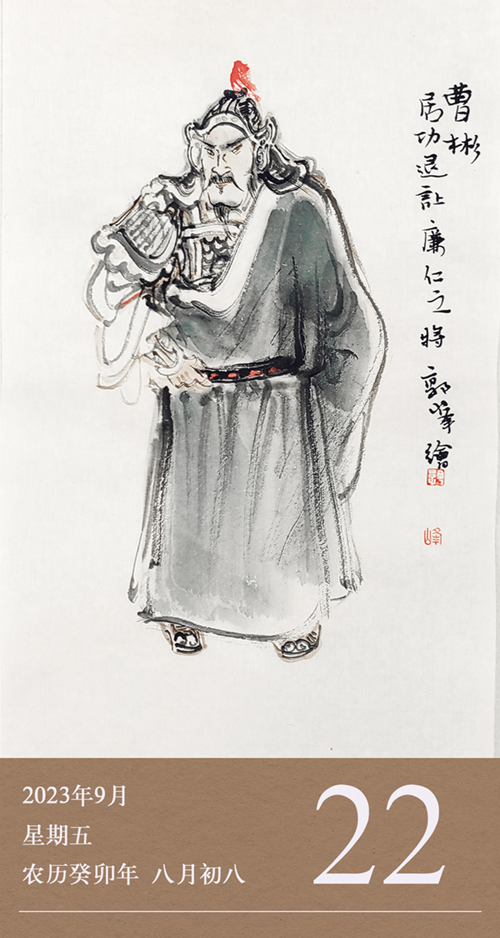 曹彬
居功退讓廉仁之將 郭峰繪
峰
2023年9月
星期五
农历癸卯年 八月初八
22